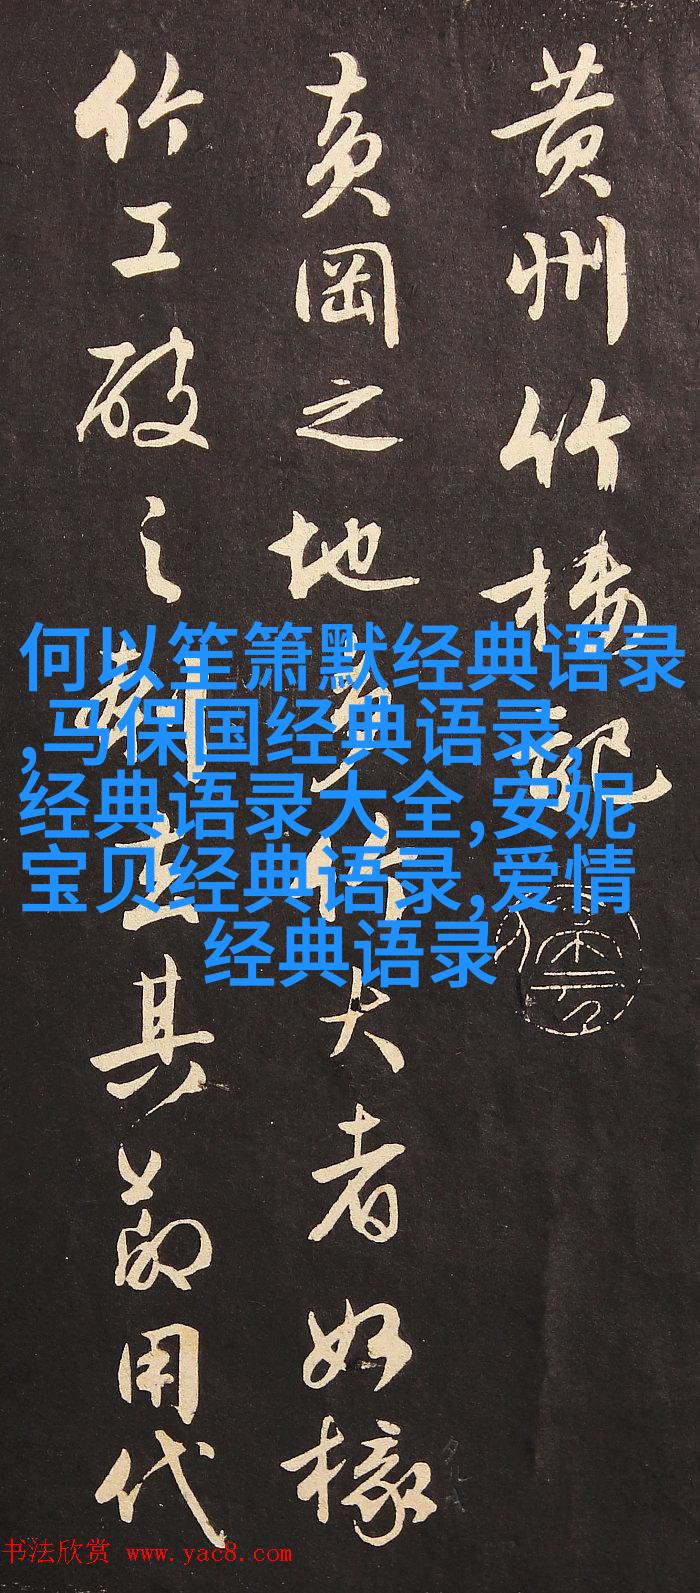 黄州竹樓記
黄岡之地多竹大者如椽
竹工破之刳去其節用代
何以笙箫默经典语录
,马保国经典语录,
经典语录大全,安妮
宝贝经典语录,爱情
经典语录
书法欣赏 www.yac8.com